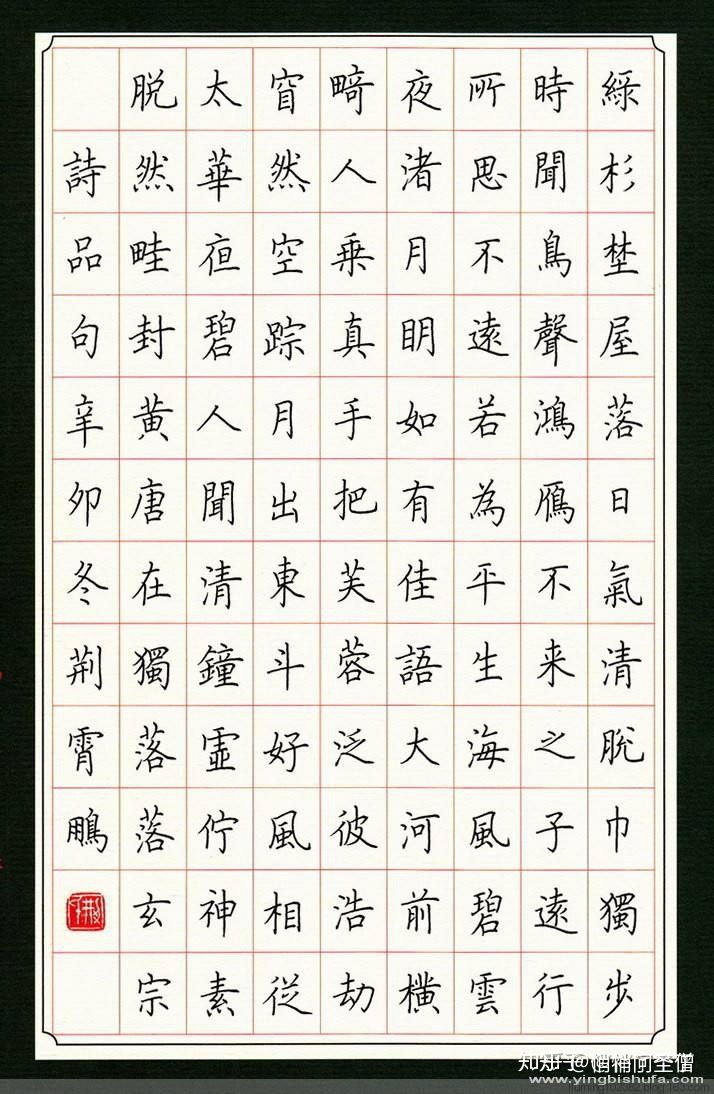 綠杉埜屋落日氣清脫巾獨步
時聞鳥聲鴻鴈不来之子遠行
所思不遠若為平生海風碧雲
夜渚月明如有佳語大河前橫
畸人乗真手把芙蓉泛彼浩劫
窅然空踪月出東斗好風相從
太華夜碧人聞清鐘虛佇神素
脫然畦封黃唐在獨落落玄宗
詩品句辛卯冬荊霄鵬
知乎
www.yingbishufa.com